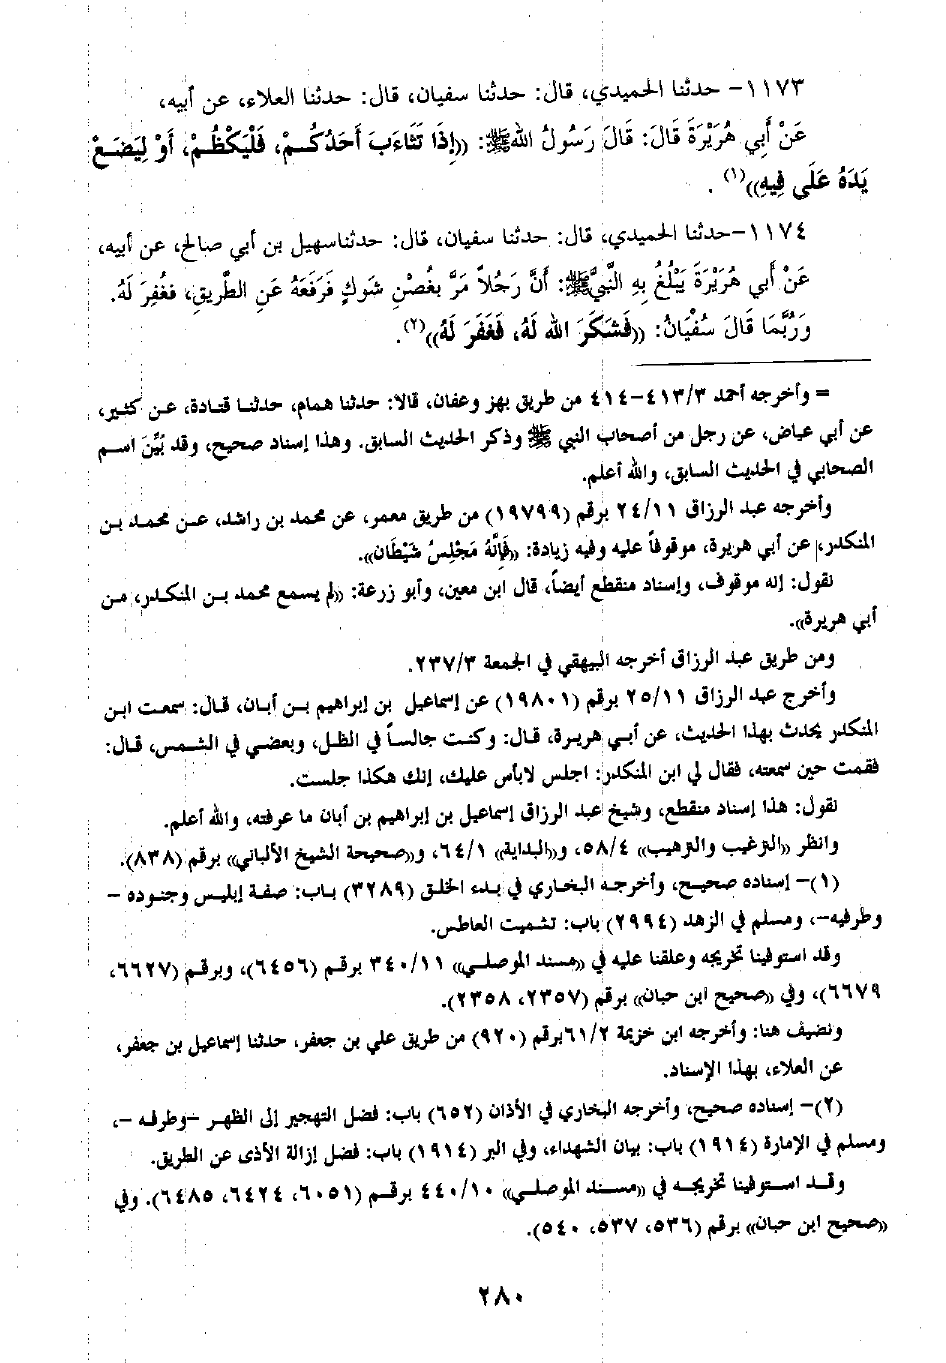 ١١٧٣- حدثنا الحميدي، قال: حدثنا سفيان، قال: حدثنا العلاء، عن أبيه،
عَنْ أَبِي هُرَيْرَةَ قَالَ: قَالَ رَسُولُ اللهِ ﷺ: ((إِذَا تَثَاءَبَ أَحَدُكُمْ، فَلْيَكْظُمْ، أَوْ لِيَضَعْ
يَدَهُ عَلَى فِيهِ))(١).
١١٧٤-حدثنا الحميدي، قال: حدثنا سفيان، قال: حدثناسهيل بن أبي صالح، عن أبيه،
عَنْ أَبي هُرَيْرَةَ يَبْلُغُ بِهِ النَّبِيَّ ﷺ: أَنَّ رَجُلاً مَرَّ بغُصْنِ شَوكٍ فَرَفَعَهُ عَنِ الطَّرِيقِ، فَغُفِرَ لَهُ.
وَرُبَّمَا قَالَ سُفْيَانُ: ((فَشَكَرَ الله لَهُ، فَغَفَرَ لَهُ))(٢).
= وأخرجه أحمد ٤١٣/٣-٤١٤ من طريق بهز وعفان، قالا: حدثنا همام، حدثنا قتادة، عن كثير،
عن أبي عياض، عن رجل من أصحاب النبي ﷺ وذكر الحديث السابق. وهذا إسناد صحيح، وقد بُيِّنَ اسم
الصحابي في الحديث السابق، والله أعلم.
وأخرجه عبد الرزاق ٢٤/١١ برقم (١٩٧٩٩) من طريق معمر، عن محمد بن راشد، عن محمد بن
المنكدر، عن أبي هريرة، موقوفاً عليه وفيه زيادة: ((فَإِنَّهُ مَجْلِسُ شَيْطَان)).
نقول: إنه موقوف، وإسناد منقطع أيضاً، قال ابن معين، وأبو زرعة: ((لم يسمع محمد بن المنكدر، من
أبي هريرة)).
ومن طريق عبد الرزاق أخرجه البيهقي في الجمعة ٢٣٧/٣.
وأخرج عبد الرزاق ٢٥/١١ برقم (١٩٨٠١) عن إسماعيل بن إبراهيم بن أبان، قال: سمعت ابن
المنكدر يحدث بهذا الحديث، عن أبي هريرة، قال: وكنت جالساً في الظل، وبعضي في الشمس، قال:
فقمت حين سمعته، فقال لي ابن المنكدر: اجلس لابأس عليك، إنك هكذا جلست.
نقول: هذا إسناد منقطع، وشيخ عبد الرزاق إسماعيل بن إبراهيم بن أبان ما عرفته، والله أعلم.
وانظر ((الترغيب والترهيب)) ٥٨/٤، و((البداية)) ٦٤/١، و((صحيحة الشيخ الألباني)) برقم (٨٣٨).
(١)- إسناده صحيح، وأخرجه البخاري في بدء الخلق (٣٢٨٩) باب: صفة إبليس وجنوده -
وطرفيه-، ومسلم في الزهد (٢٩٩٤) باب: تشميت العاطس.
وقد استوفينا تخريجه وعلقنا عليه في ((مسند الموصلي)) ٣٤٠/١١ برقم (٦٤٥٦)، وبرقم (٦٦٢٧،
٦٦٧٩)، وفي ((صحيح ابن حبان)) برقم (٢٣٥٧، ٢٣٥٨).
ونضيف هنا: وأخرجه ابن خزيمة ٦١/٢برقم (٩٢٠) من طريق علي بن جعفر، حدثنا إسماعيل بن جعفر،
عن العلاء، بهذا الإسناد.
(٢)- إسناده صحيح، وأخرجه البخاري في الأذان (٦٥٢) باب: فضل التهجير إلى الظهر -وطرفه -،
ومسلم في الإمارة (١٩١٤) باب: بيان الشهداء، وفي البر (١٩١٤) باب: فضل إزالة الأذى عن الطريق.
وقد استوفينا تخريجه في ((مسند الموصلي)) ٤٤٠/١٠ برقم (٦٠٥١، ٦٤٢٤، ٦٤٨٥). وفي
((صحيح ابن حبان)) برقم (٥٣٦، ٥٣٧، ٥٤٠).
٢٨٠